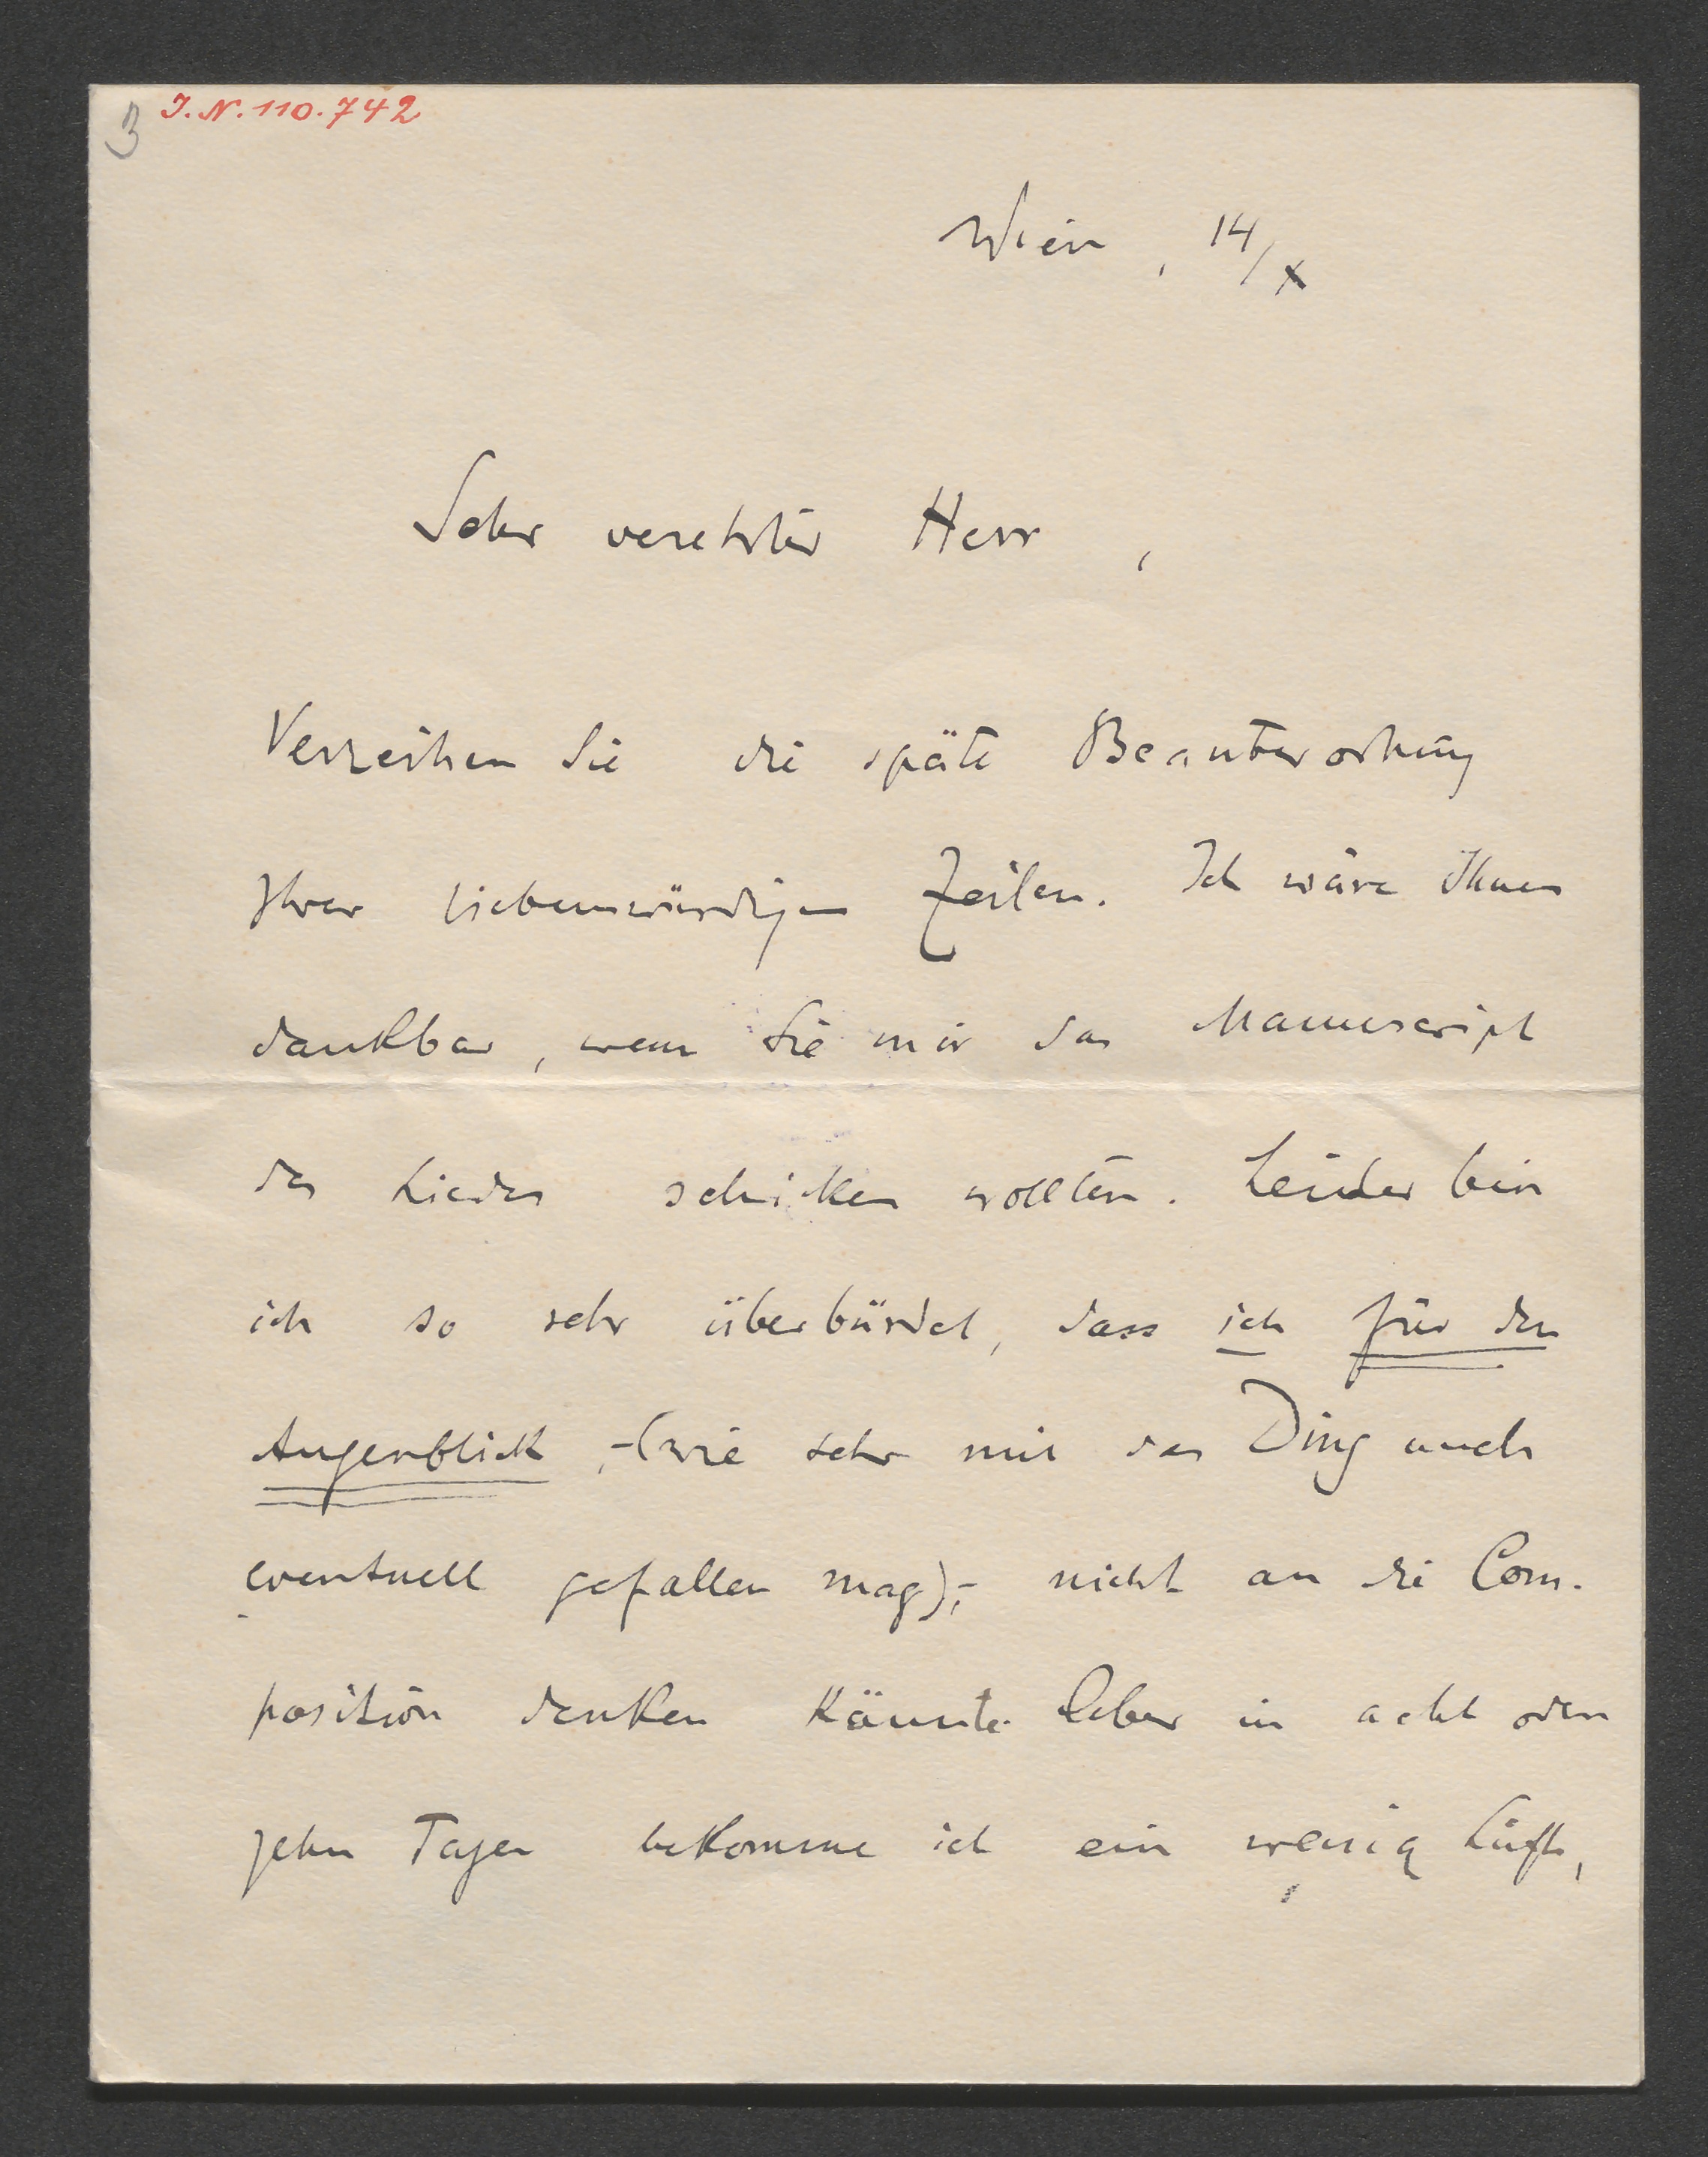 3 I.N. 110.742
Wien, 14/X
Sehr verehrter Herr,
Verzeihen Sie die späte Beantwortung
Ihrer liebenswürdigen Zeilen. Ich wäre Ihnen
dankbar, wenn Sie mir das Manuscript
des Liedes schicken wollten. Leider bin
ich so sehr überbürdet, dass ich für den
Augenblick,-(wie sehr mir das Ding auch
eventuell gefallen mag),- nicht an die Com-
position denken könnte. Aber in acht oder
zehn Tagen bekomme ich ein wenig Luft,